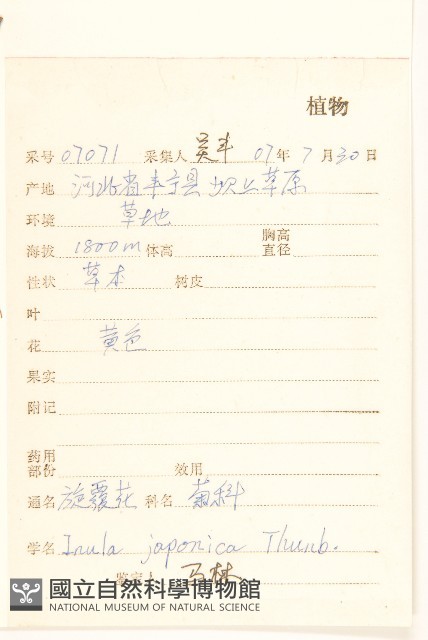 植物
采号 07071 采集人 吴丰 07年 7月30日
产地 河北省丰宁县坝上草原
环境 草地
海拔 1800m 体高 胸高直径
性状 草本 树皮
叶
花 黄色
果实
附记
药用部份 效用
通名 旋覆花 科名 菊科
学名 Inula japonica Thunb.
鉴定人 林
國立自然科學博物館
NATIONAL MUSEUM OF NATURAL SCIENCE